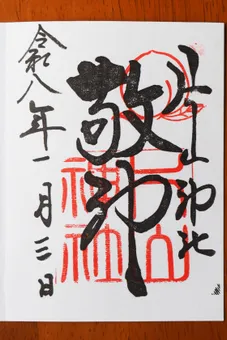 片山神社
敬神
令和八年一月三日